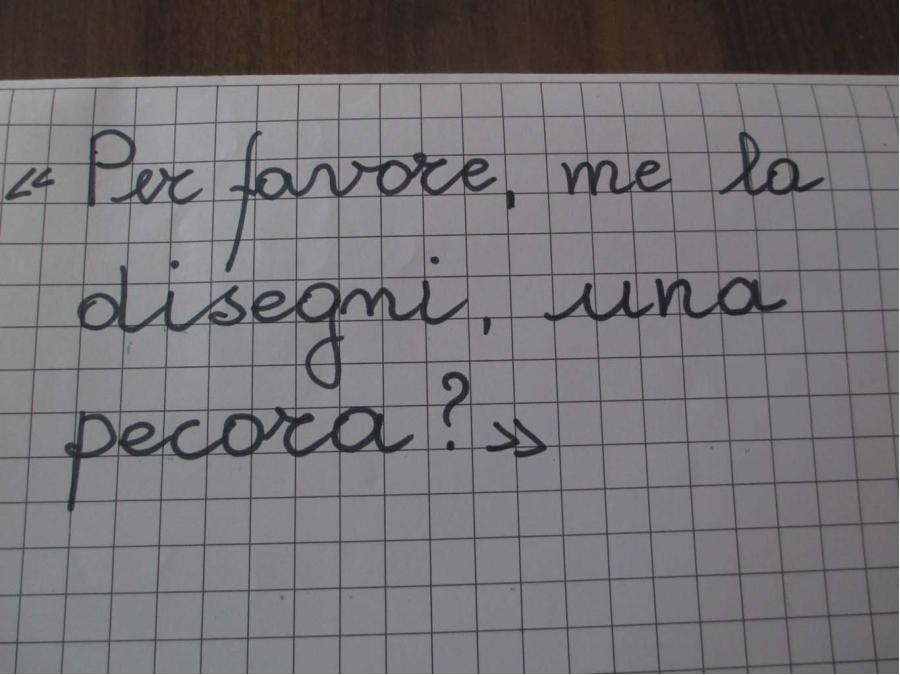 « Per favore, me la
disegni, una
pecora? »